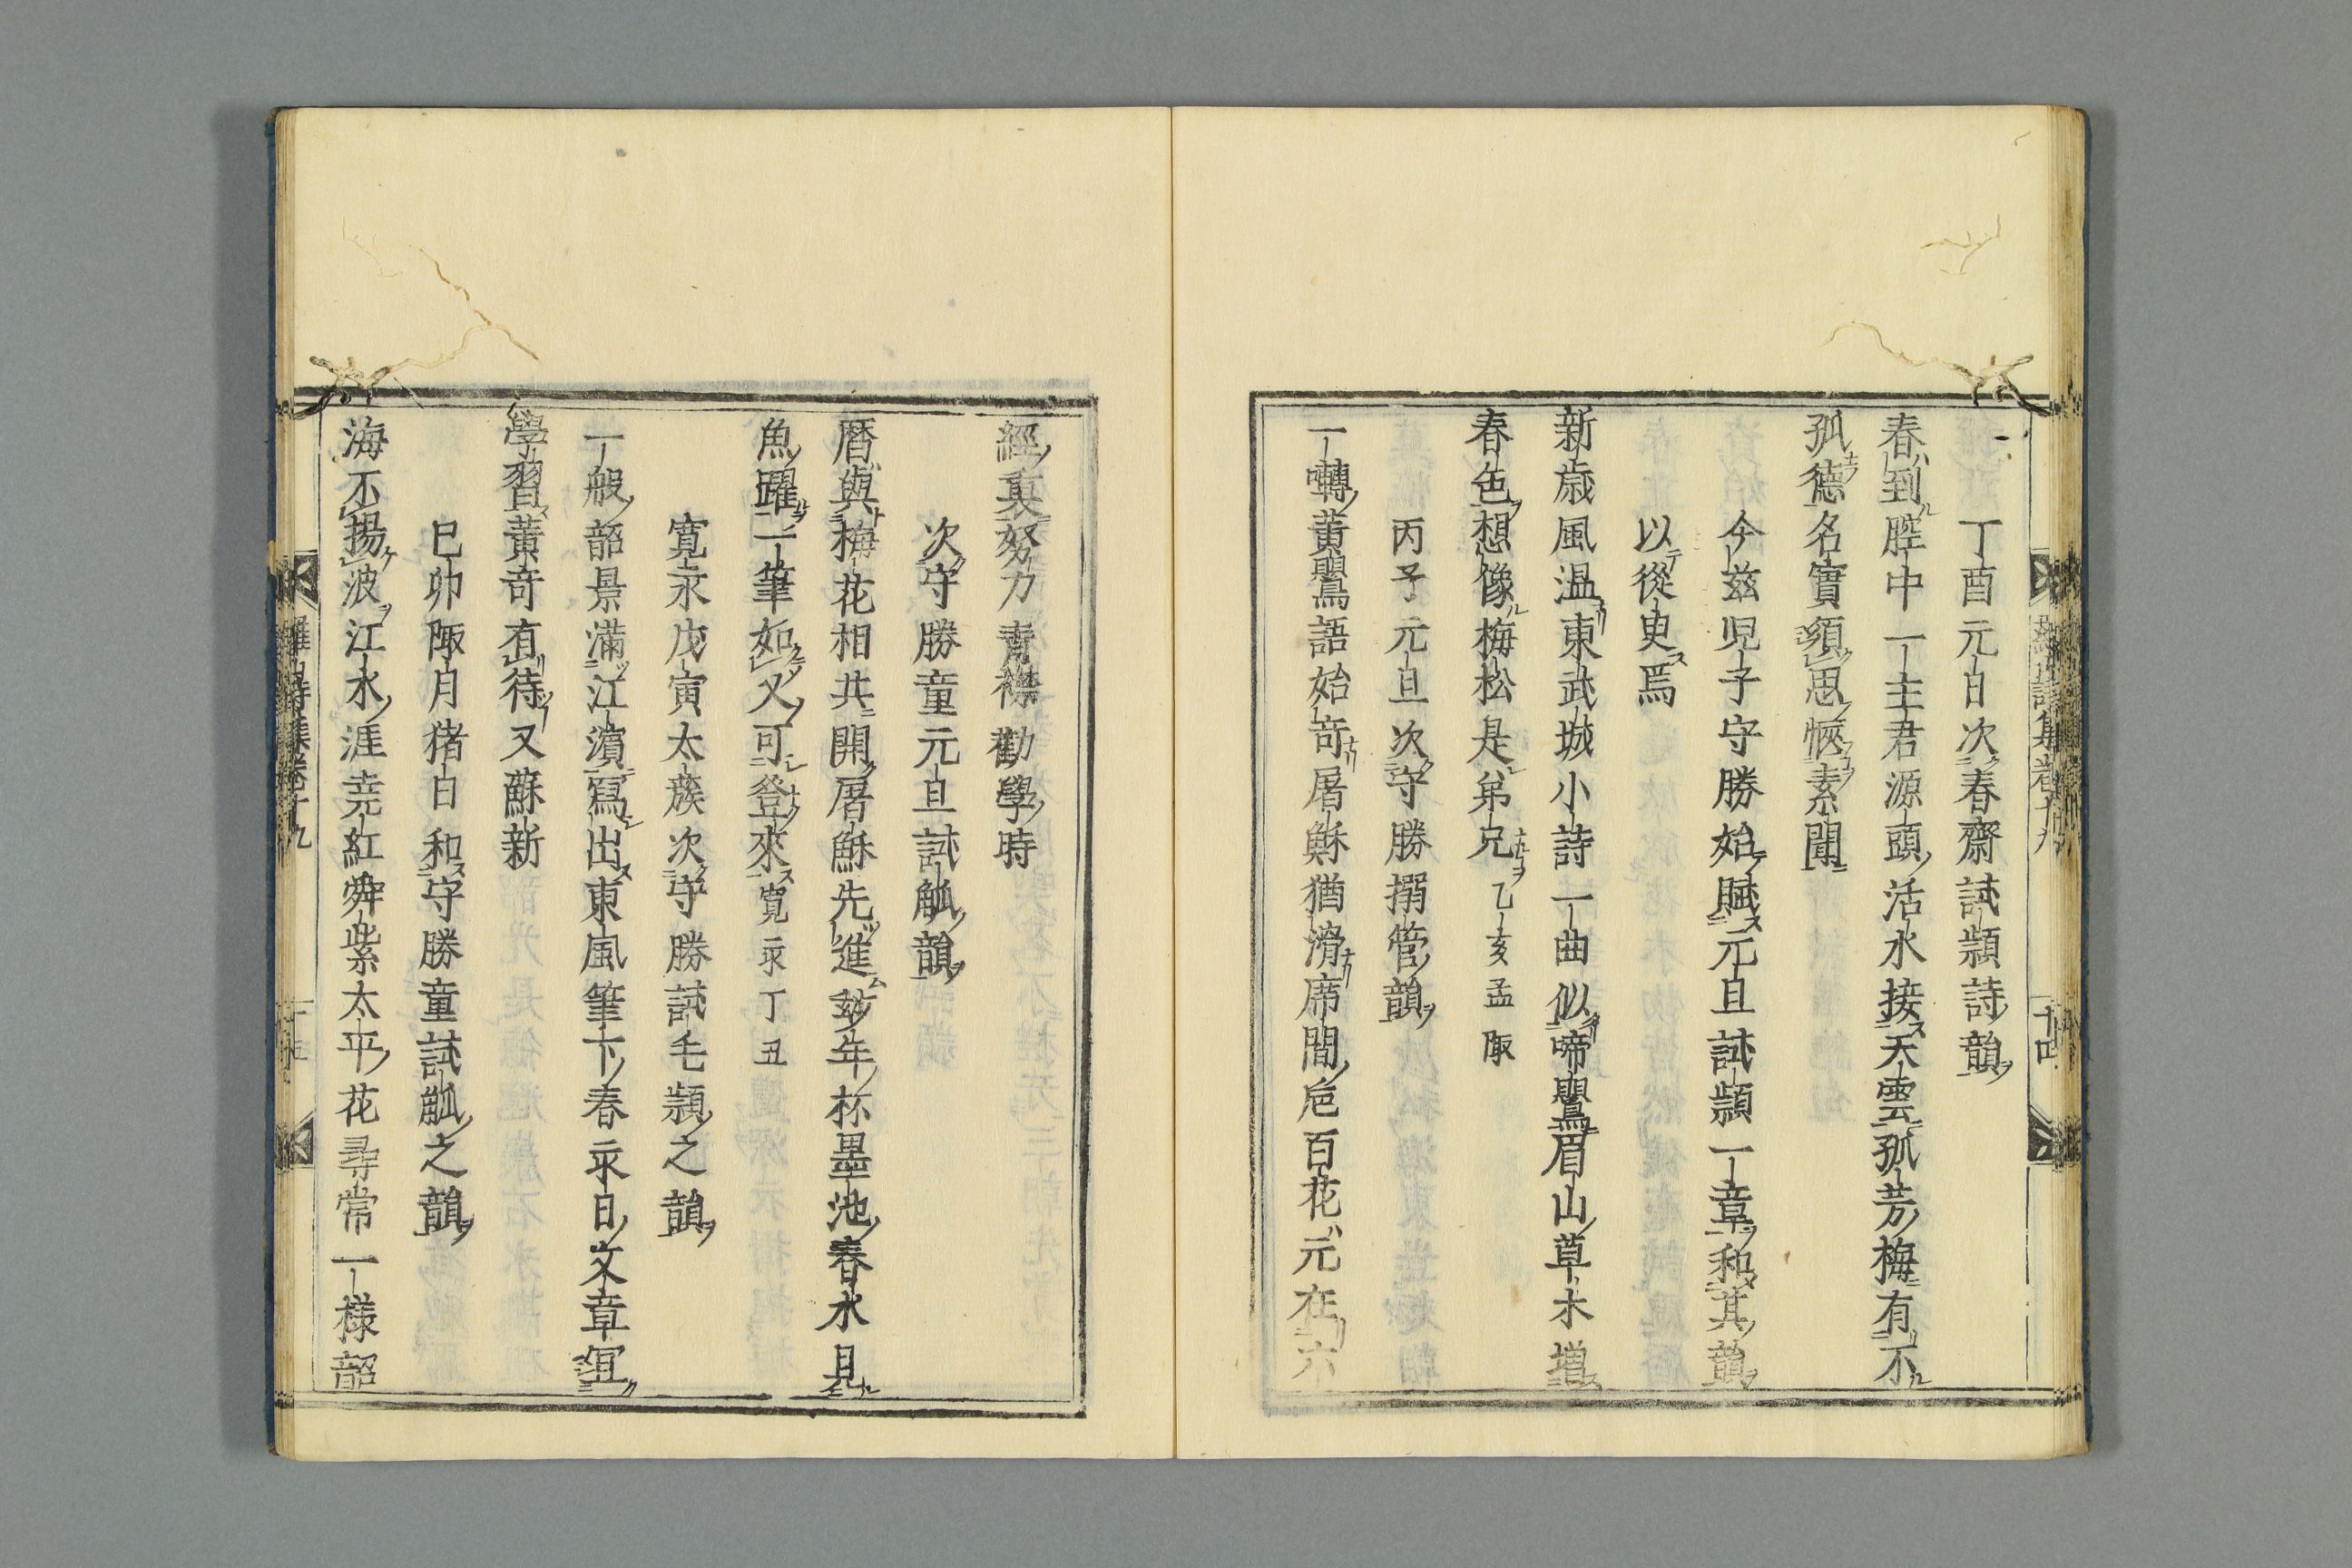 丁酉元日次春齋試頴詩韻
春到腔中一主君源頭活水接天雲孤芳梅有不
孤德名實須思愜素聞
今茲児子守勝始賦元旦試頴一章和其韻
以從臾焉
新歳風温東武城小詩一曲似啼鸎眉山草木増
春色想像梅松是弟兄 乙亥孟陬
丙子元旦次守勝搦管韻
一囀黄鸎語始竒屠穌猶滑席間巵百花元在六
經裏努力青襟勸學時
次守勝童元旦試觚韻
暦與梅花相共開屠穌先進妙年杯墨池春水見
魚躍一筆如乂可登來 寛永丁丑
寛永戊寅太蔟次守勝試毛頴之韻
一般韶景滿江濵寫出東風筆下春永日文章宜
學習黄奇有待又蘇新
已卯陬月猪日和守勝童試觚之韻
海不揚波江水涯堯紅舜紫太平花尋常一様韶
羅山詩集卷十九
羅山詩集卷十九 十四